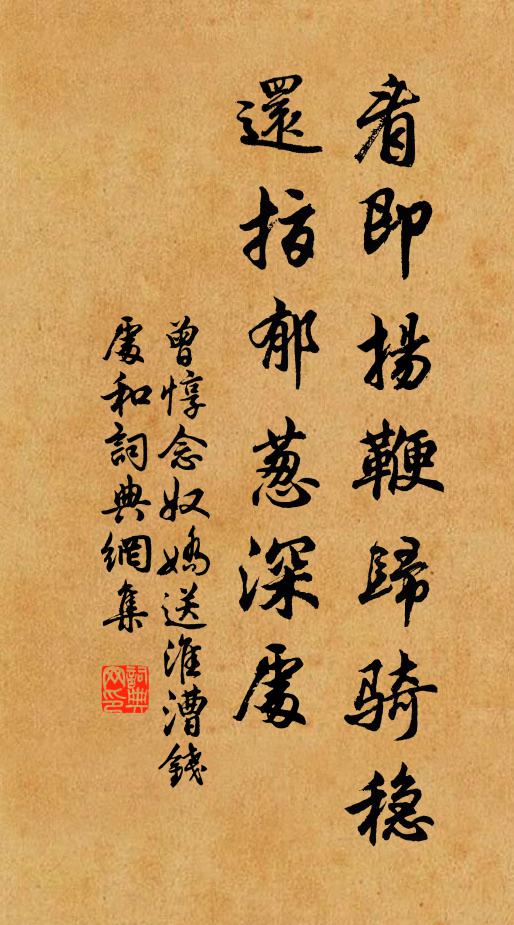 看即揚鞭歸騎穩
還指郁葱深處
曾惇念奴嬌送淮漕錢
處和詞典網集
詞典
网印